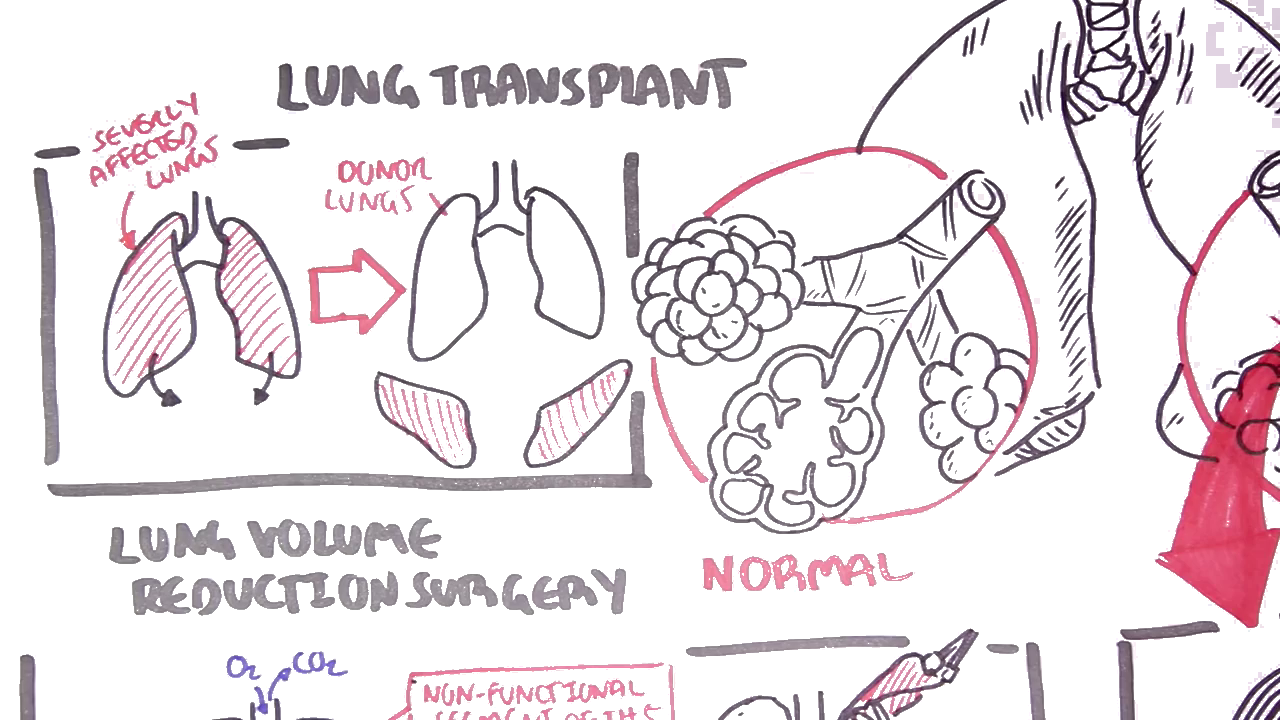 LUNG TRANSPLANT
SEVERLY
AFFECTED
LUNGS
DONOR
LUNGS
NORMAL
LUNG VOLUME
REDUCTION SURGERY
O2
CO2
NON-FUNCTIONAL
SEGMENT OF LUNGS